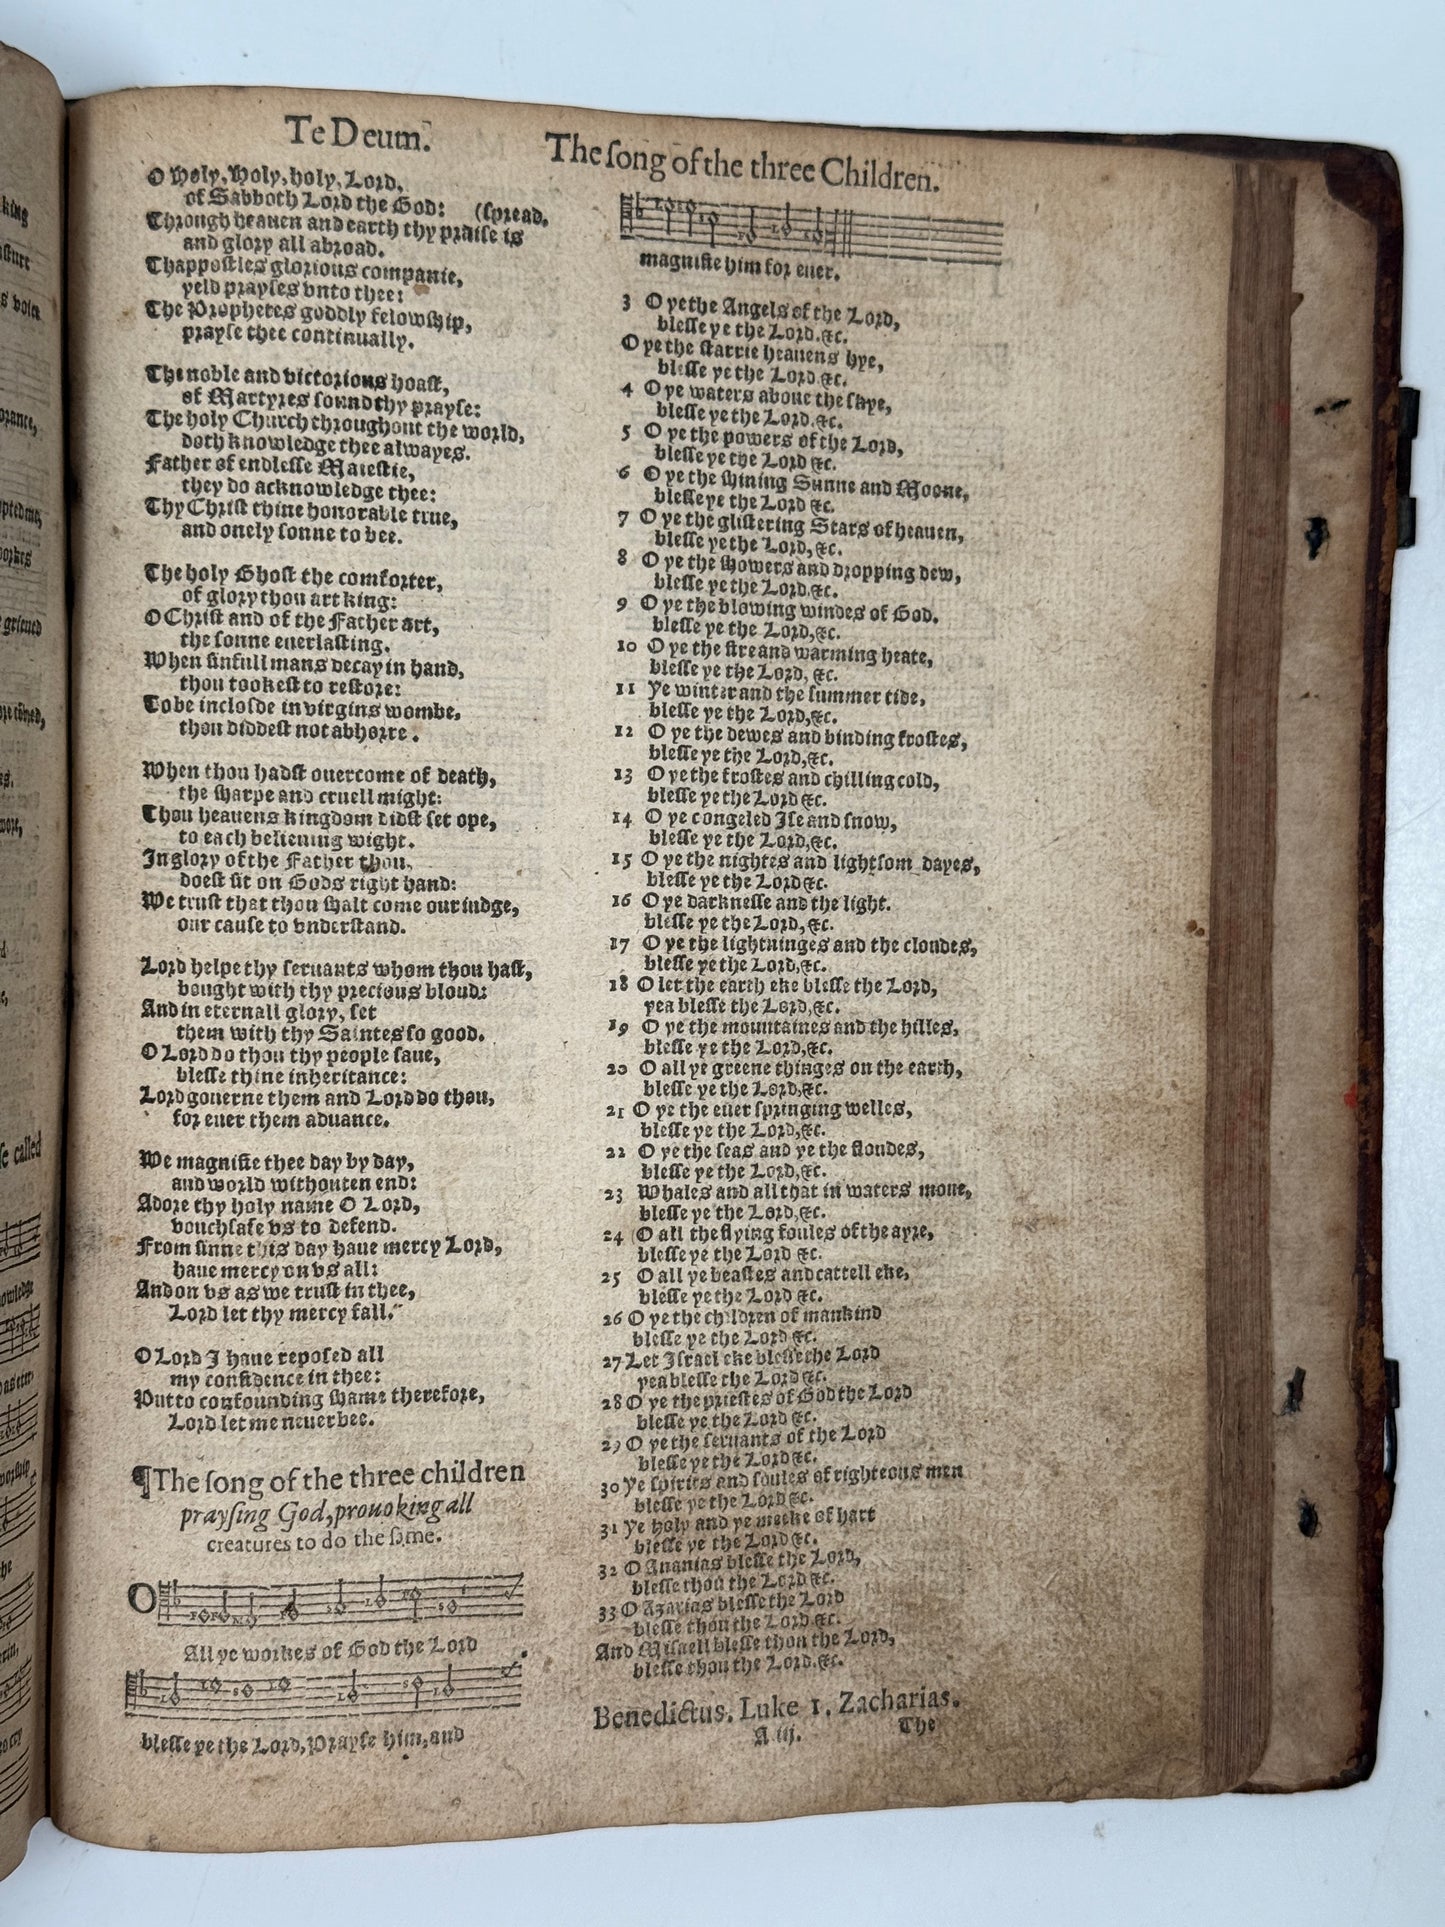 Te Deum.
O Holy, Holy, holy, Lord,
of Sabboth Lord the God:
(spread.
Through heauen and earth thy praise is
and glory all abroad.
Thappostles glorious companie,
yeld prayses vnto thee:
The Prophetes goddly felowship,
prayse thee continually.
The noble and victorious hoast,
of Martyres sound thy prayse:
The holy Church throughout the world,
doth knowledge thee alwayes.
Father of endlesse Maiestie,
they do acknowledge thee:
Thy Christ thine honorable true,
and onely sonne to bee.
The holy Ghost the comforter,
of glory thou art king:
O Christ and of the Father art,
the sonne euerlasting.
When sinfull mans decay in hand,
thou tookest to restore:
To be inclosde in virgins wombe,
thou diddest not abhorre.
When thou hadst ouercome of death,
the sharpe and cruell might:
Thou heauens kingdom didst set ope,
to each beleeuing wight.
In glory of the Father thou,
doest sit on Gods right hand:
We trust that thou shalt come our iudge,
our cause to vnderstand.
Lord helpe thy seruants whom thou hast,
bought with thy precious bloud:
And in eternall glory, set
them with thy Saintes so good.
O Lord do thou thy people saue,
blesse thine inheritance:
Lord gouerne them and Lord do thou,
for euer them aduance.
We magnifie thee day by day,
and world withouten end:
Adore thy holy name O Lord,
vouchsafe vs to defend.
From sinne this day haue mercy Lord,
haue mercy on vs all:
And on vs as we trust in thee,
Lord let thy mercy fall.
O Lord I haue reposed all
my confidence in thee:
Put to confounding shame therefore,
Lord let me neuer bee.
¶The song of the three children
praysing God, prouoking all
creatures to do the same.
O
All ye workes of God the Lord
blesse ye the Lord, Prayse him, and
The song of the three Children.
magnifie him for euer.
3 O ye the Angels of the Lord,
blesse ye the Lord. &c.
O ye the starrie heauens hye,
blesse ye the Lord &c.
4 O ye waters aboue the skye,
blesse ye the Lord. &c.
5 O ye the powers of the Lord,
blesse ye the Lord &c.
6 O ye the shining Sunne and Moone,
blesse ye the Lord &c.
7 O ye the glistering Stars of heauen,
blesse ye the Lord, &c.
8 O ye the showers and dropping dew,
blesse ye the Lord. &c.
9 O ye the blowing windes of God.
blesse ye the Lord, &c.
10 O ye the fire and warming heate,
blesse ye the Lord, &c.
11 Ye winter and the summer tide,
blesse ye the Lord, &c.
12 O ye the dewes and binding frostes,
blesse ye the Lord, &c.
13 O ye the frostes and chilling cold,
blesse ye the Lord &c.
14 O ye congeled Ise and snow,
blesse ye the Lord, &c.
15 O ye the nightes and lightsom dayes,
blesse ye the Lord &c.
16 O ye darknesse and the light.
blesse ye the Lord, &c.
17 O ye the lightninges and the cloudes,
blesse ye the Lord, &c.
18 O let the earth eke blesse the Lord,
yea blesse the Lord, &c.
19 O ye the mountaines and the hilles,
blesse ye the Lord, &c.
20 O all ye greene thinges on the earth,
blesse ye the Lord, &c.
21 O ye the euer springing welles,
blesse ye the Lord, &c.
22 O ye the seas and ye the floudes,
blesse ye the Lord, &c.
23 Whales and all that in waters moue,
blesse ye the Lord, &c.
24 O all the flying foules of the ayre,
blesse ye the Lord &c.
25 O all ye beastes and cattell eke,
blesse ye the Lord &c.
26 O ye the children of mankind
blesse ye the Lord &c.
27 Let Israel eke blesse the Lord
yea blesse the Lord &c.
28 O ye the priestes of God the Lord
blesse ye the Lord &c.
29 O ye the seruants of the Lord
blesse ye the Lord &c.
30 Ye spirits and soules of righteous men
blesse ye the Lord &c.
31 Ye holy and ye meeke of hart
blesse ye the Lord &c.
32 O Ananias blesse the Lord,
blesse thou the Lord &c.
33 O Azarias blesse the Lord
blesse thou the Lord &c.
And Misaell blesse thou the Lord,
blesse thou the Lord. &c.
Benedictus. Luke 1. Zacharias.
A iij.
The